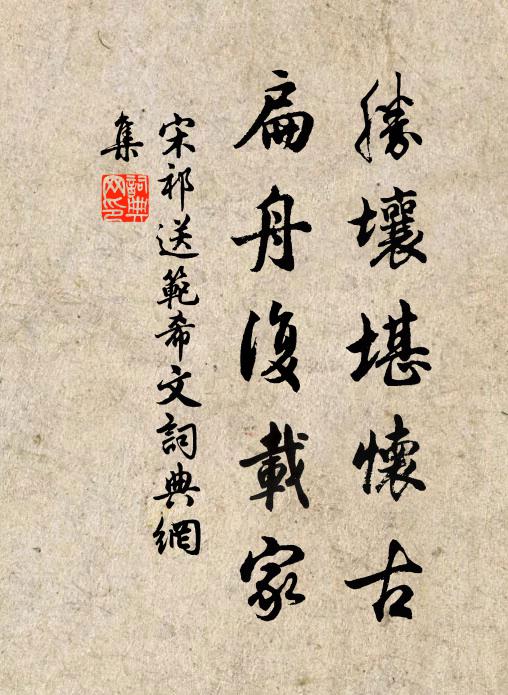 勝壤堪懷古
扁舟復載家
宋祁送範希文詞典網
集
詞典
网印